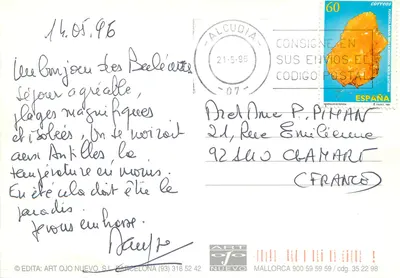 14.05.96
Un bonjour des Baléares
Séjour agréable,
plages magnifiques
et isolées, on se croirait
aux Antilles, la
température en moins.
En été cela doit être le
paradis.
Je vous embrasse.
ALCUDIA
21-5-96
07
CONSIGNE EN
SUS ENVIOS EL
CODIGO POSTAL
60
correos
ESPAÑA
P. PIMAN
21, Rue Emilienne
92140 CLAMART
(FRANCE)
© EDITA: ART OJO NUEVO, S.L. BARCELONA (93) 318 52 42
ART
OJO
NUEVO
MALLORCA 900 59 59 59 / cdg. 35 22 98